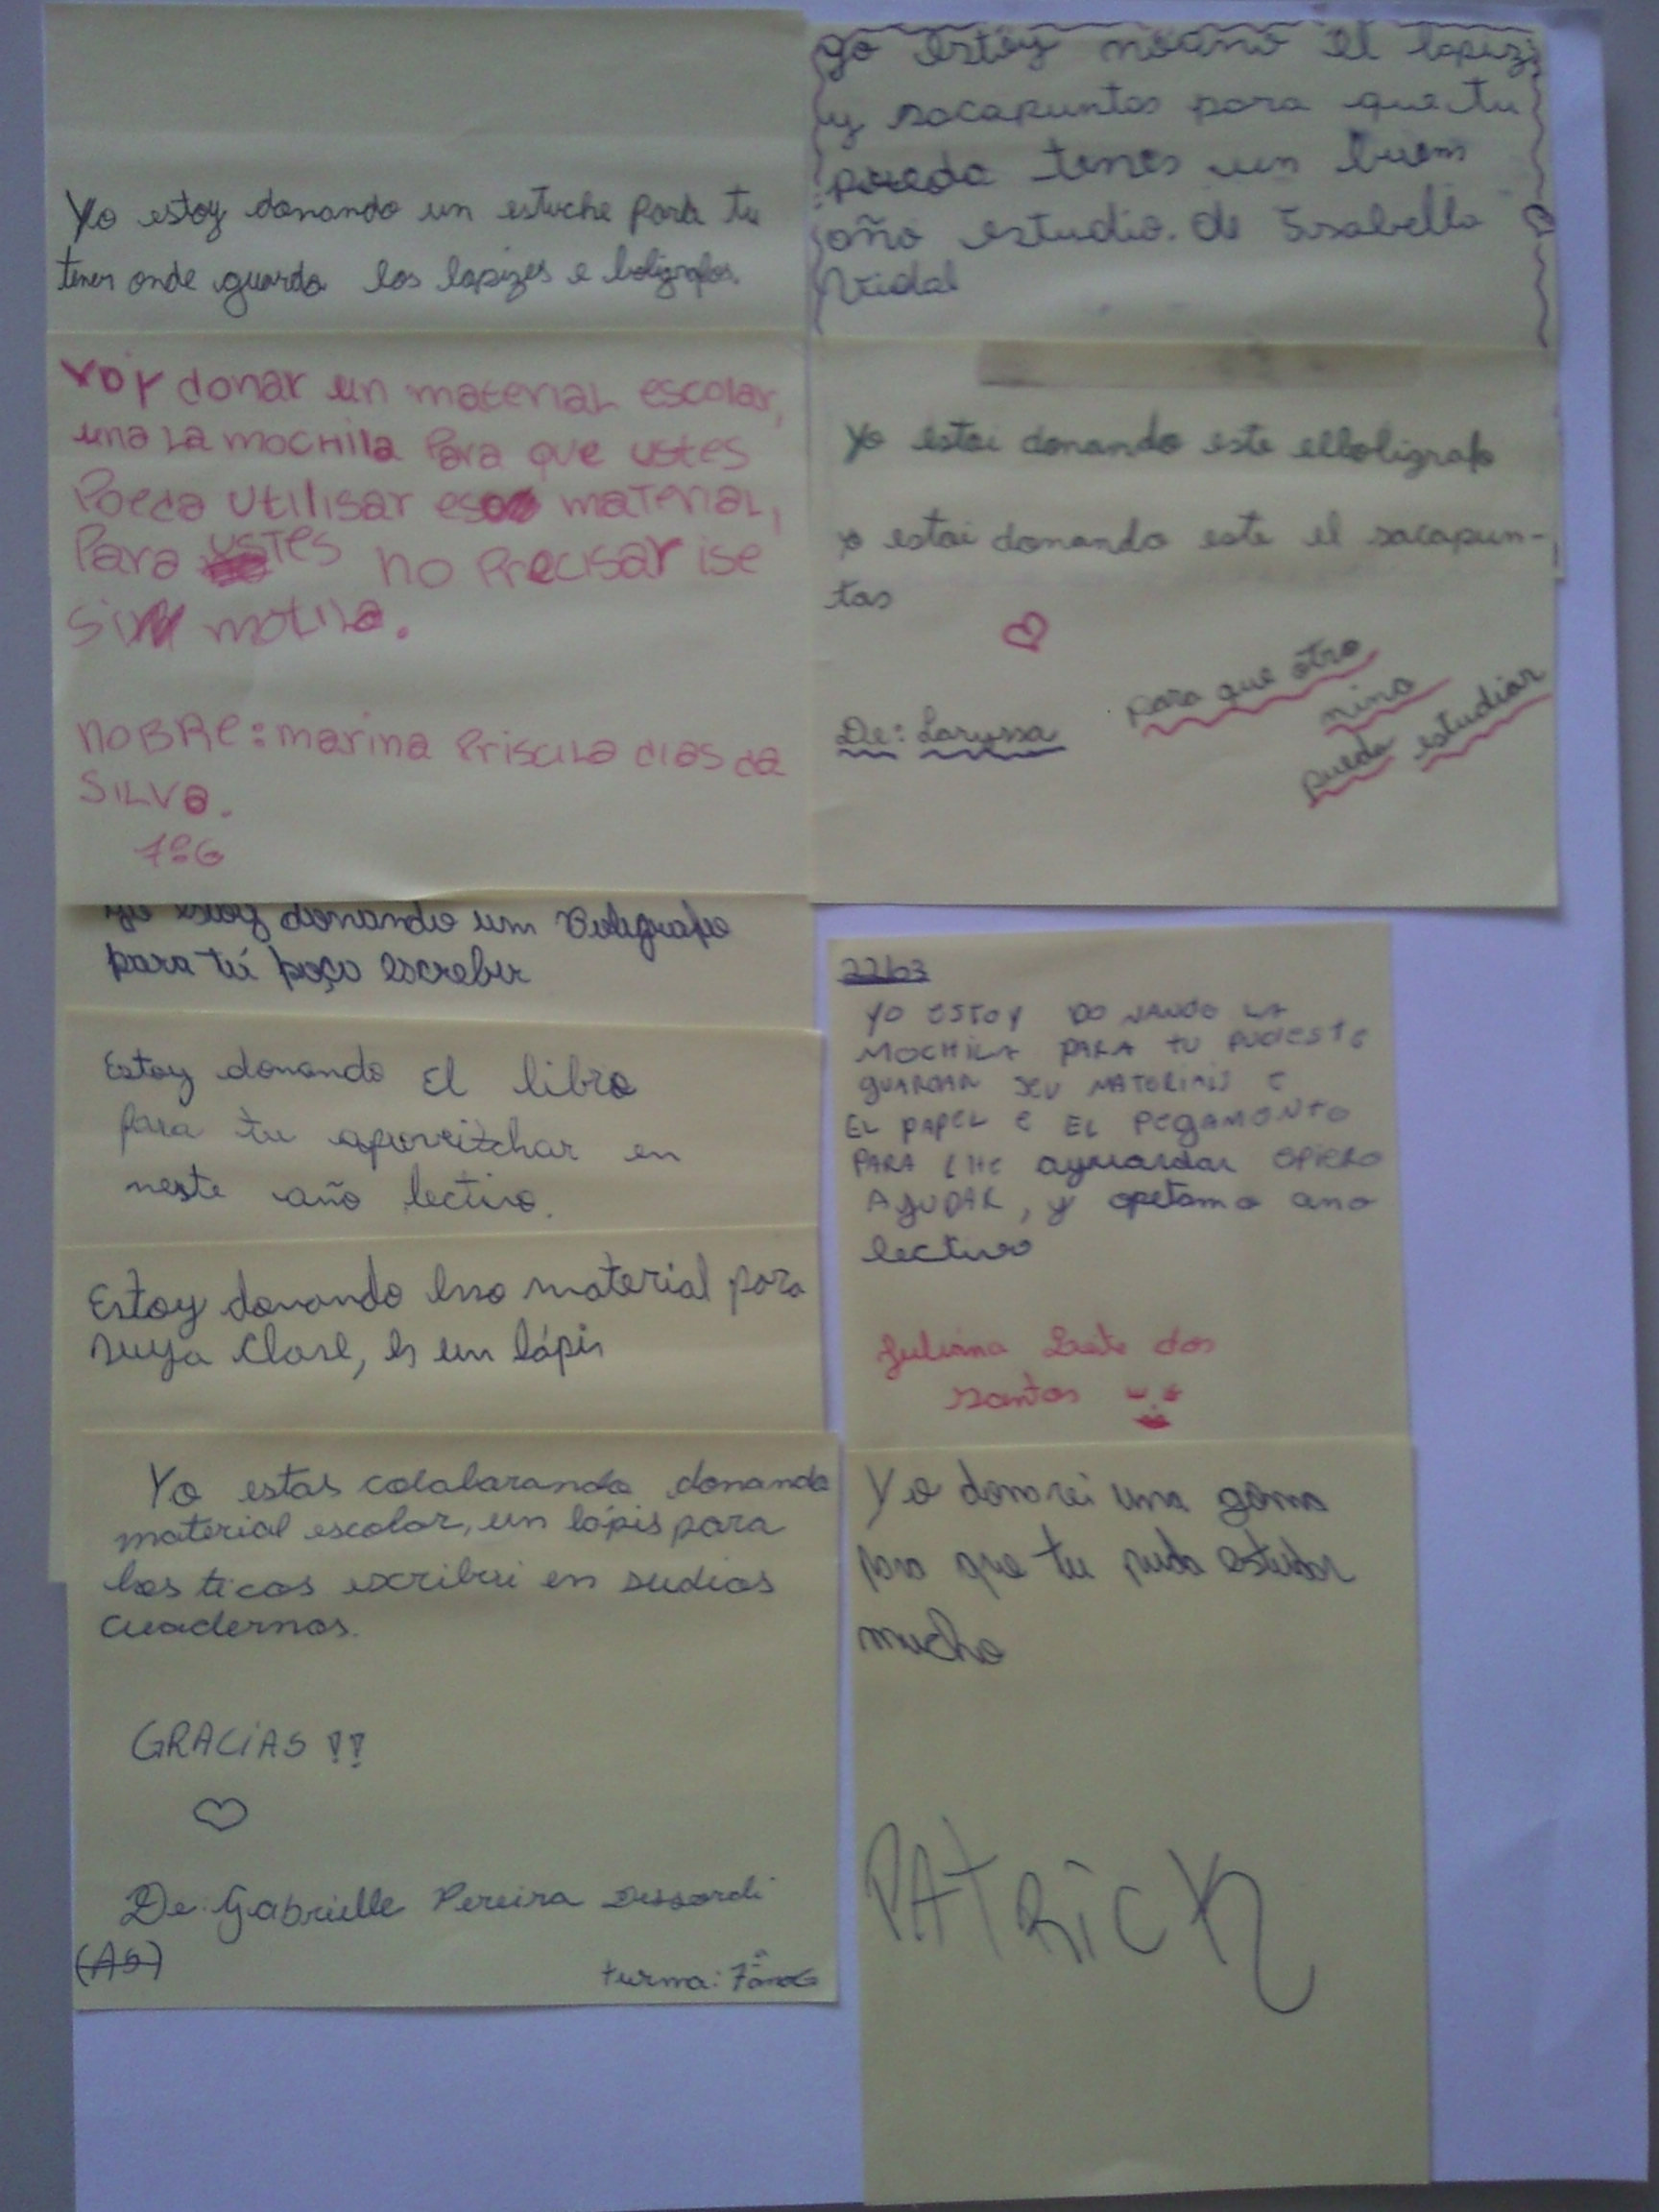 Yo estoy donando un estuche para tu
tener onde guarda los lapizes e boligrafos.
Voy donar un material escolar,
una la mochila Para que ustes
Poeda utilisar material,
Para ustes no Precisar ise
sin motila.
NOBRE: marina Priscila dias da
SILVa.
7ºG
yo estoy donando um Boligrafo
para tú poço escrebir
Estoy donando El libro
para tu aproveitchar en
neste año lectivo.
Estoy donando Esso material para
suya Clase, es un lápis
Yo estas colabarando donando
material escolar, un lápis para
los ticos escribir en sudios
cuadernos.
GRACIAS !!
De: Gabrielle Pereira
turma: 7º anoG
yo estoy el lapiz
y sacapuntas para que tu
pueda tener un buem
año estudio. de Issabella
Vidal
Yo estoi donando este elboligrafo
yo estoi donando este el sacapun-
tas
De: Laryssa
para que otro
nino
pueda estudiar
22/03
YO ESTOY DONANDO LA
MOCHILA PARA TU PUDESTE
GUARDAR SEU MATERIAIS E
EL PAPEL E EL PEGAMONTO
PARA LHE AJUDAR, y opetamo ano
lectivo
Juliana Leite dos
santos
Yo donarei una goma
para que tu puda estudar
mucho
PATRICK